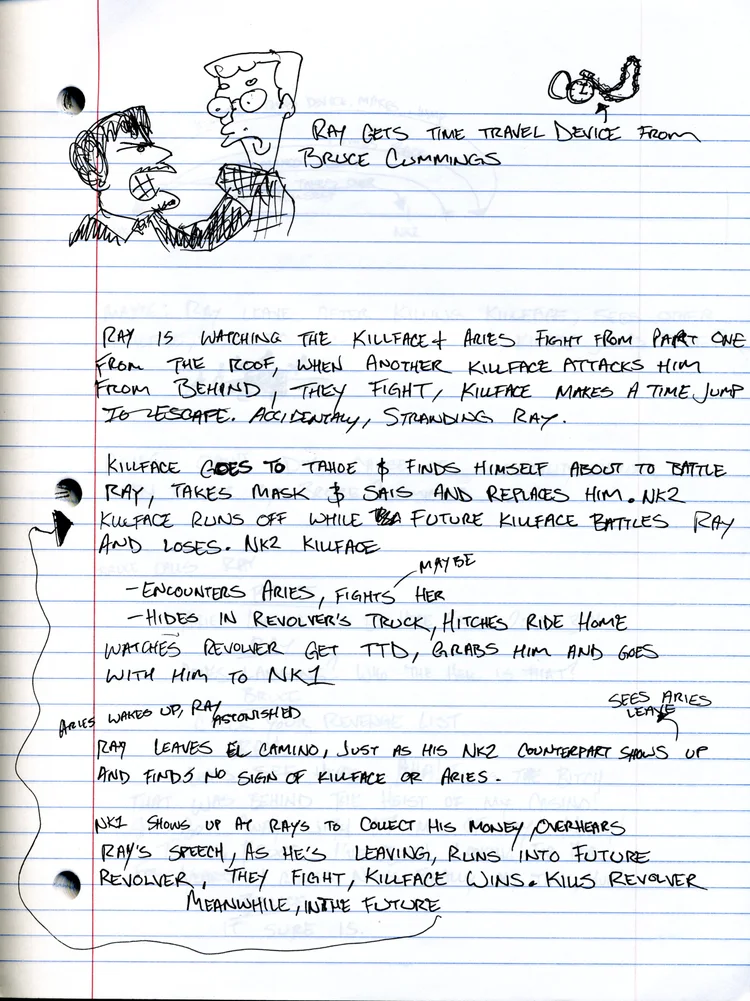 RAY GETS TIME TRAVEL DEVICE FROM
BRUCE CUMMINGS
RAY IS WATCHING THE KILLFACE & ARIES FIGHT FROM PART ONE
FROM THE ROOF, WHEN ANOTHER KILLFACE ATTACKS HIM
FROM BEHIND, THEY FIGHT, KILLFACE MAKES A TIME JUMP
TO ESCAPE. ACCIDENTALY, STRANDING RAY.
KILLFACE GOES TO TAHOE & FINDS HIMSELF ABOUT TO BATTLE
RAY, TAKES MASK & SAIS AND REPLACES HIM. NK2
KILLFACE RUNS OFF WHILE FUTURE KILLFACE BATTLES RAY
AND LOSES. NK2 KILLFACE
MAYBE
- ENCOUNTERS ARIES, FIGHTS HER
- HIDES IN REVOLVER'S TRUCK, HITCHES RIDE HOME
WATCHES REVOLVER GET TTD, GRABS HIM AND GOES
WITH HIM TO NK1
ARIES WAKES UP, RAY ASTONISHED
SEES ARIES
LEAVE
RAY LEAVES EL CAMINO, JUST AS HIS NK2 COUNTERPART SHOWS UP
AND FINDS NO SIGN OF KILLFACE OR ARIES.
NK1 SHOWS UP AT RAYS TO COLLECT HIS MONEY, OVERHEARS
RAY'S SPEECH, AS HE'S LEAVING, RUNS INTO FUTURE
REVOLVER, THEY FIGHT, KILLFACE WINS. KILLS REVOLVER
MEANWHILE, IN THE FUTURE